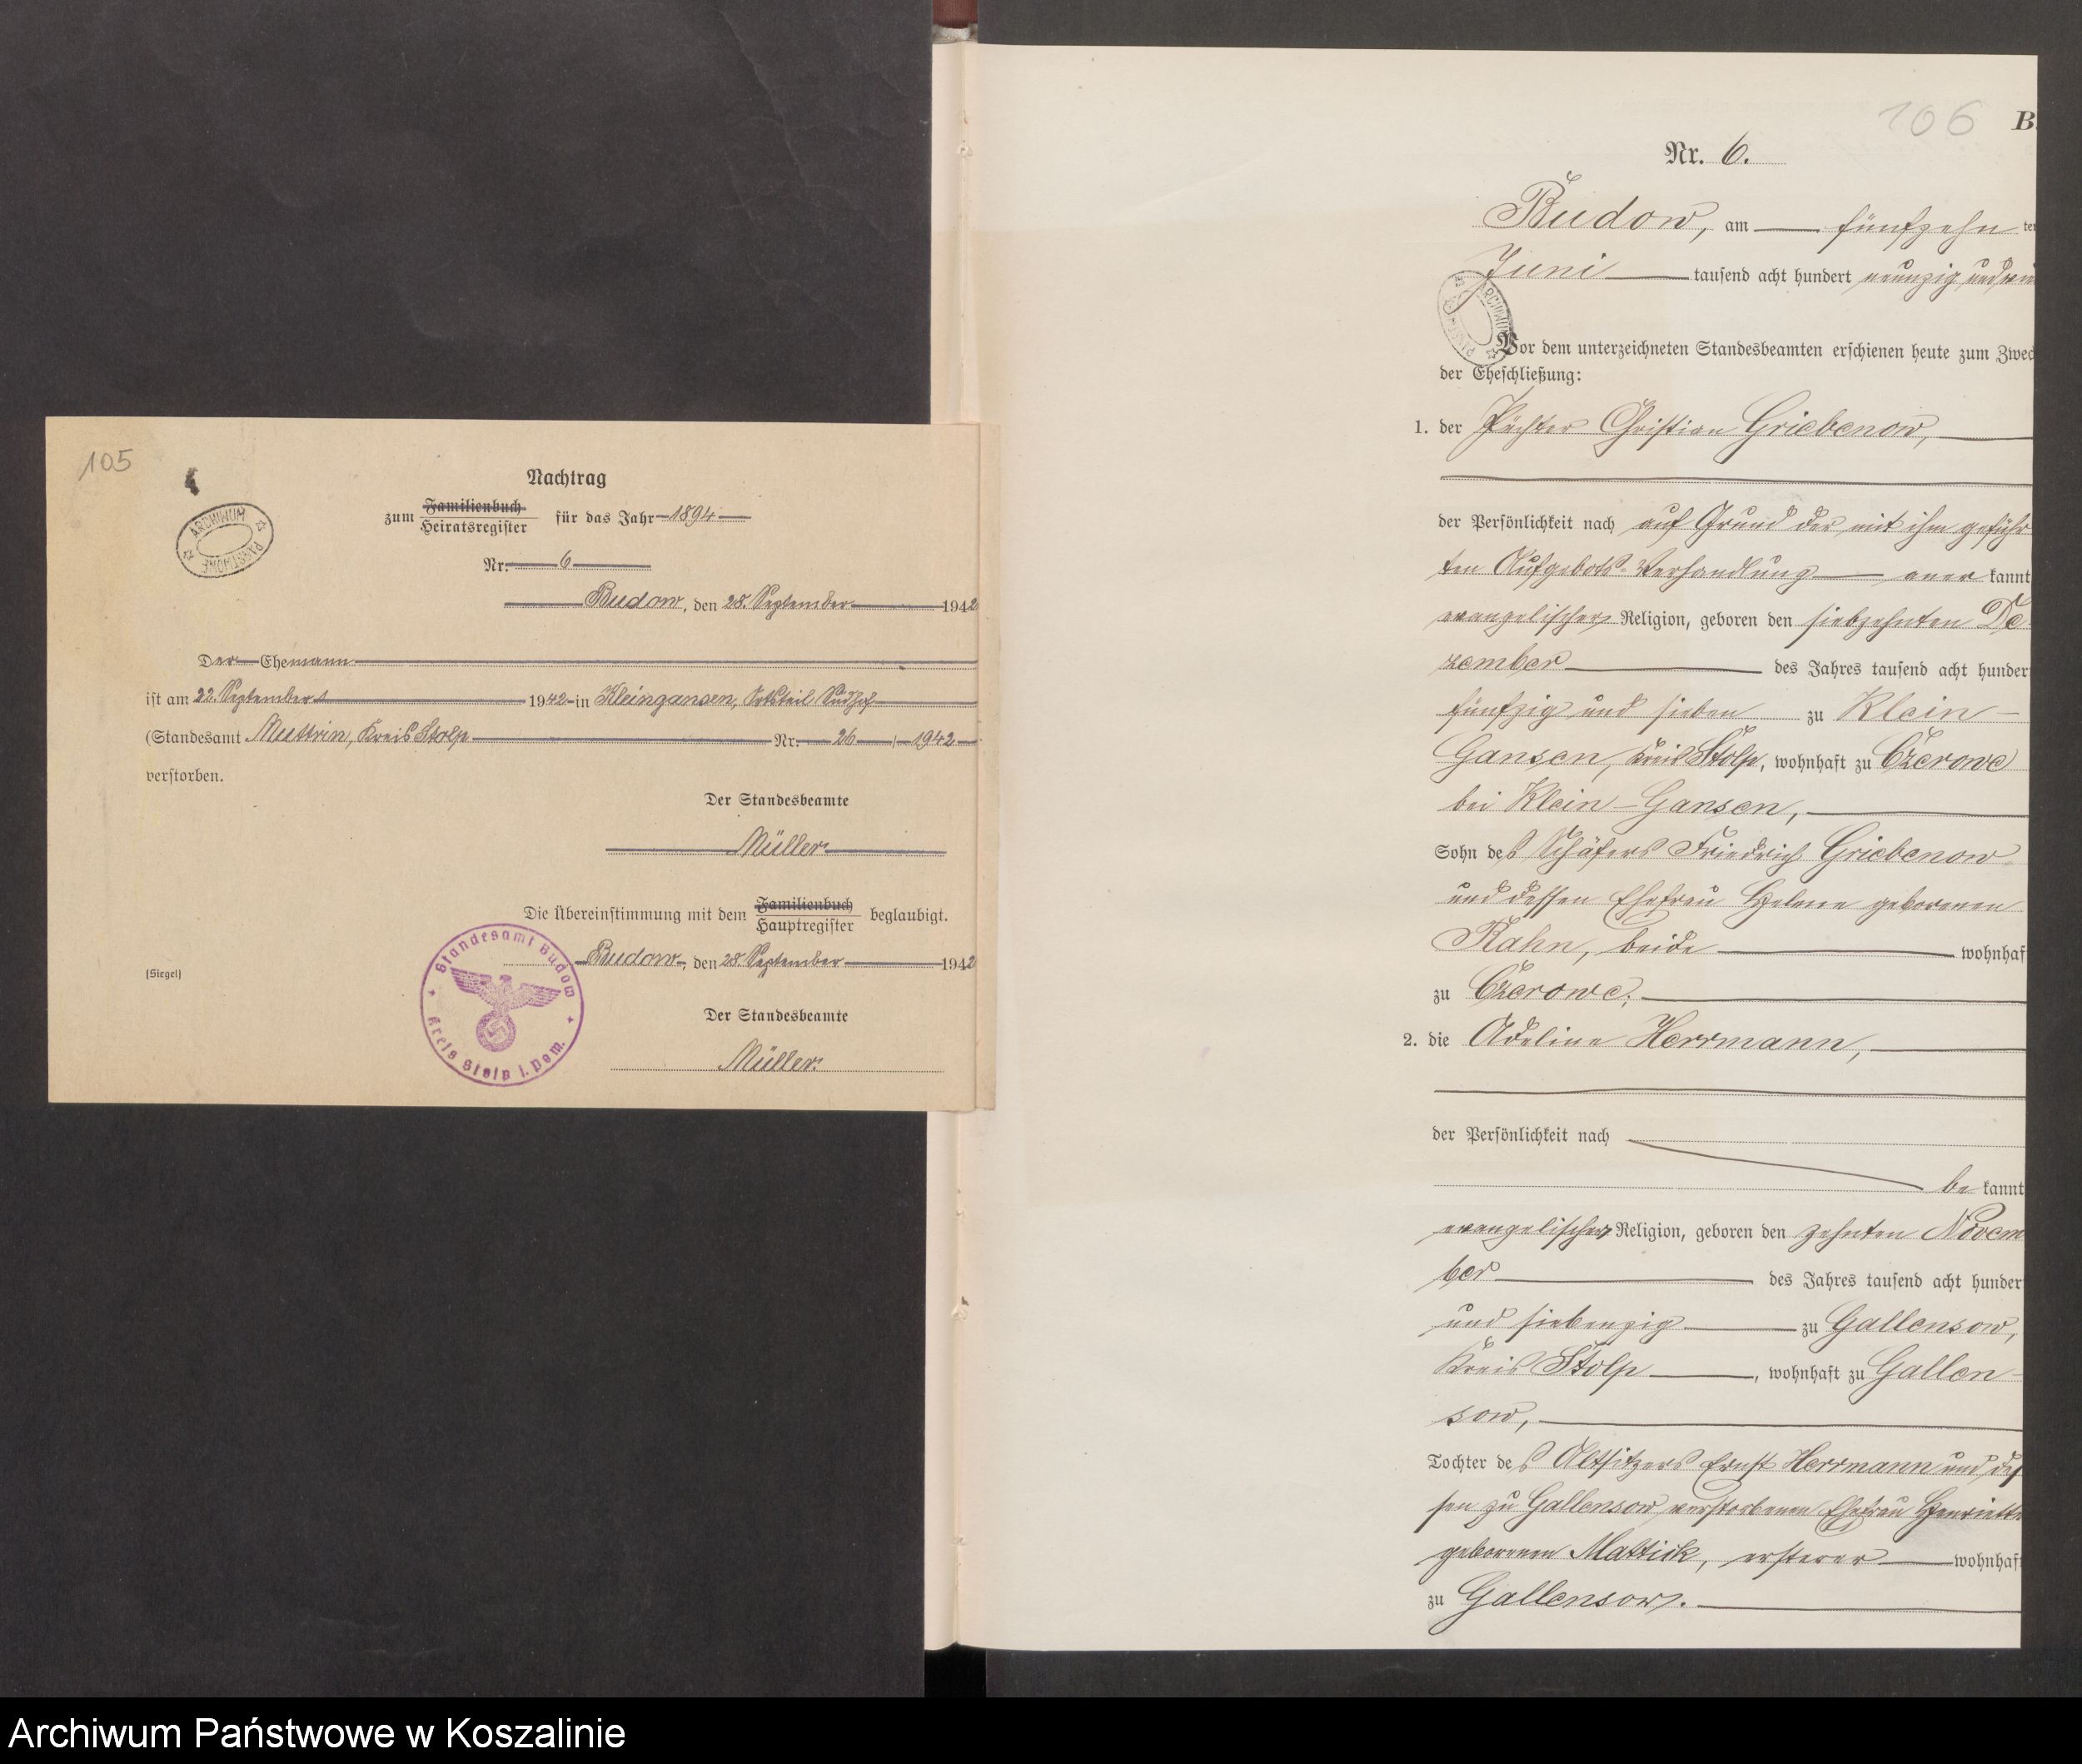 105
ARCHIWUM PAŃSTWOWE
Nachtrag
zum Familienbuch
Heiratsregister für das Jahr 1894
Nr. 6
Budow, den 28. September 1942
Der Ehemann
ist am 22. September 1942 in Kleingansen, Ortsteil Südhof
(Standesamt Muttrin, Kreis Stolp Nr. 26 / 1942
verstorben.
Der Standesbeamte
Müller.
Die Übereinstimmung mit dem Familienbuch
Hauptregister beglaubigt.
Budow, den 28. September 1942
(Siegel)
Standesamt Budow
Kreis Stolp i. Pom.
Der Standesbeamte
Müller.
106
B.
Nr. 6.
Budow, am fünfzehn ten
Juni tausend acht hundert neunzig und vie
ARCHIWUM PAŃSTW
Vor dem unterzeichneten Standesbeamten erschienen heute zum Zwec
der Eheschließung:
1. der Pächter Christian Griebenow,
der Persönlichkeit nach auf Grund der mit ihm geführ
ten Aufgebots-Verhandlung aner kannt
evangelischer Religion, geboren den siebzehnten De
zember des Jahres tausend acht hunder
fünfzig und sieben zu Klein-
Gansen, Kreis Stolp, wohnhaft zu Czerowe
bei Klein-Gansen,
Sohn des Schäfers Friedrich Griebenow
und dessen Ehefrau Helene geborenen
Rahn, beide wohnhaf
zu Czerowe.
2. die Adeline Herrmann,
der Persönlichkeit nach
be kannt
evangelischer Religion, geboren den zehnten Novem
ber des Jahres tausend acht hunder
und siebenzig zu Gallensow,
Kreis Stolp, wohnhaft zu Gallen-
sow,
Tochter des Altsitzers Ernst Herrmann und des
sen zu Gallensow verstorbenen Ehefrau Henriette
geborenen Mattick, ersterer wohnhaf
zu Gallensow.
Archiwum Państwowe w Koszalinie